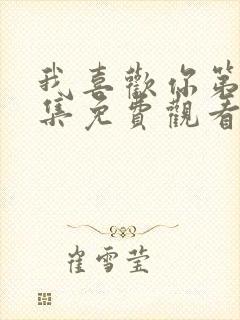 我喜歡你第
集免費觀看
崔雪莹